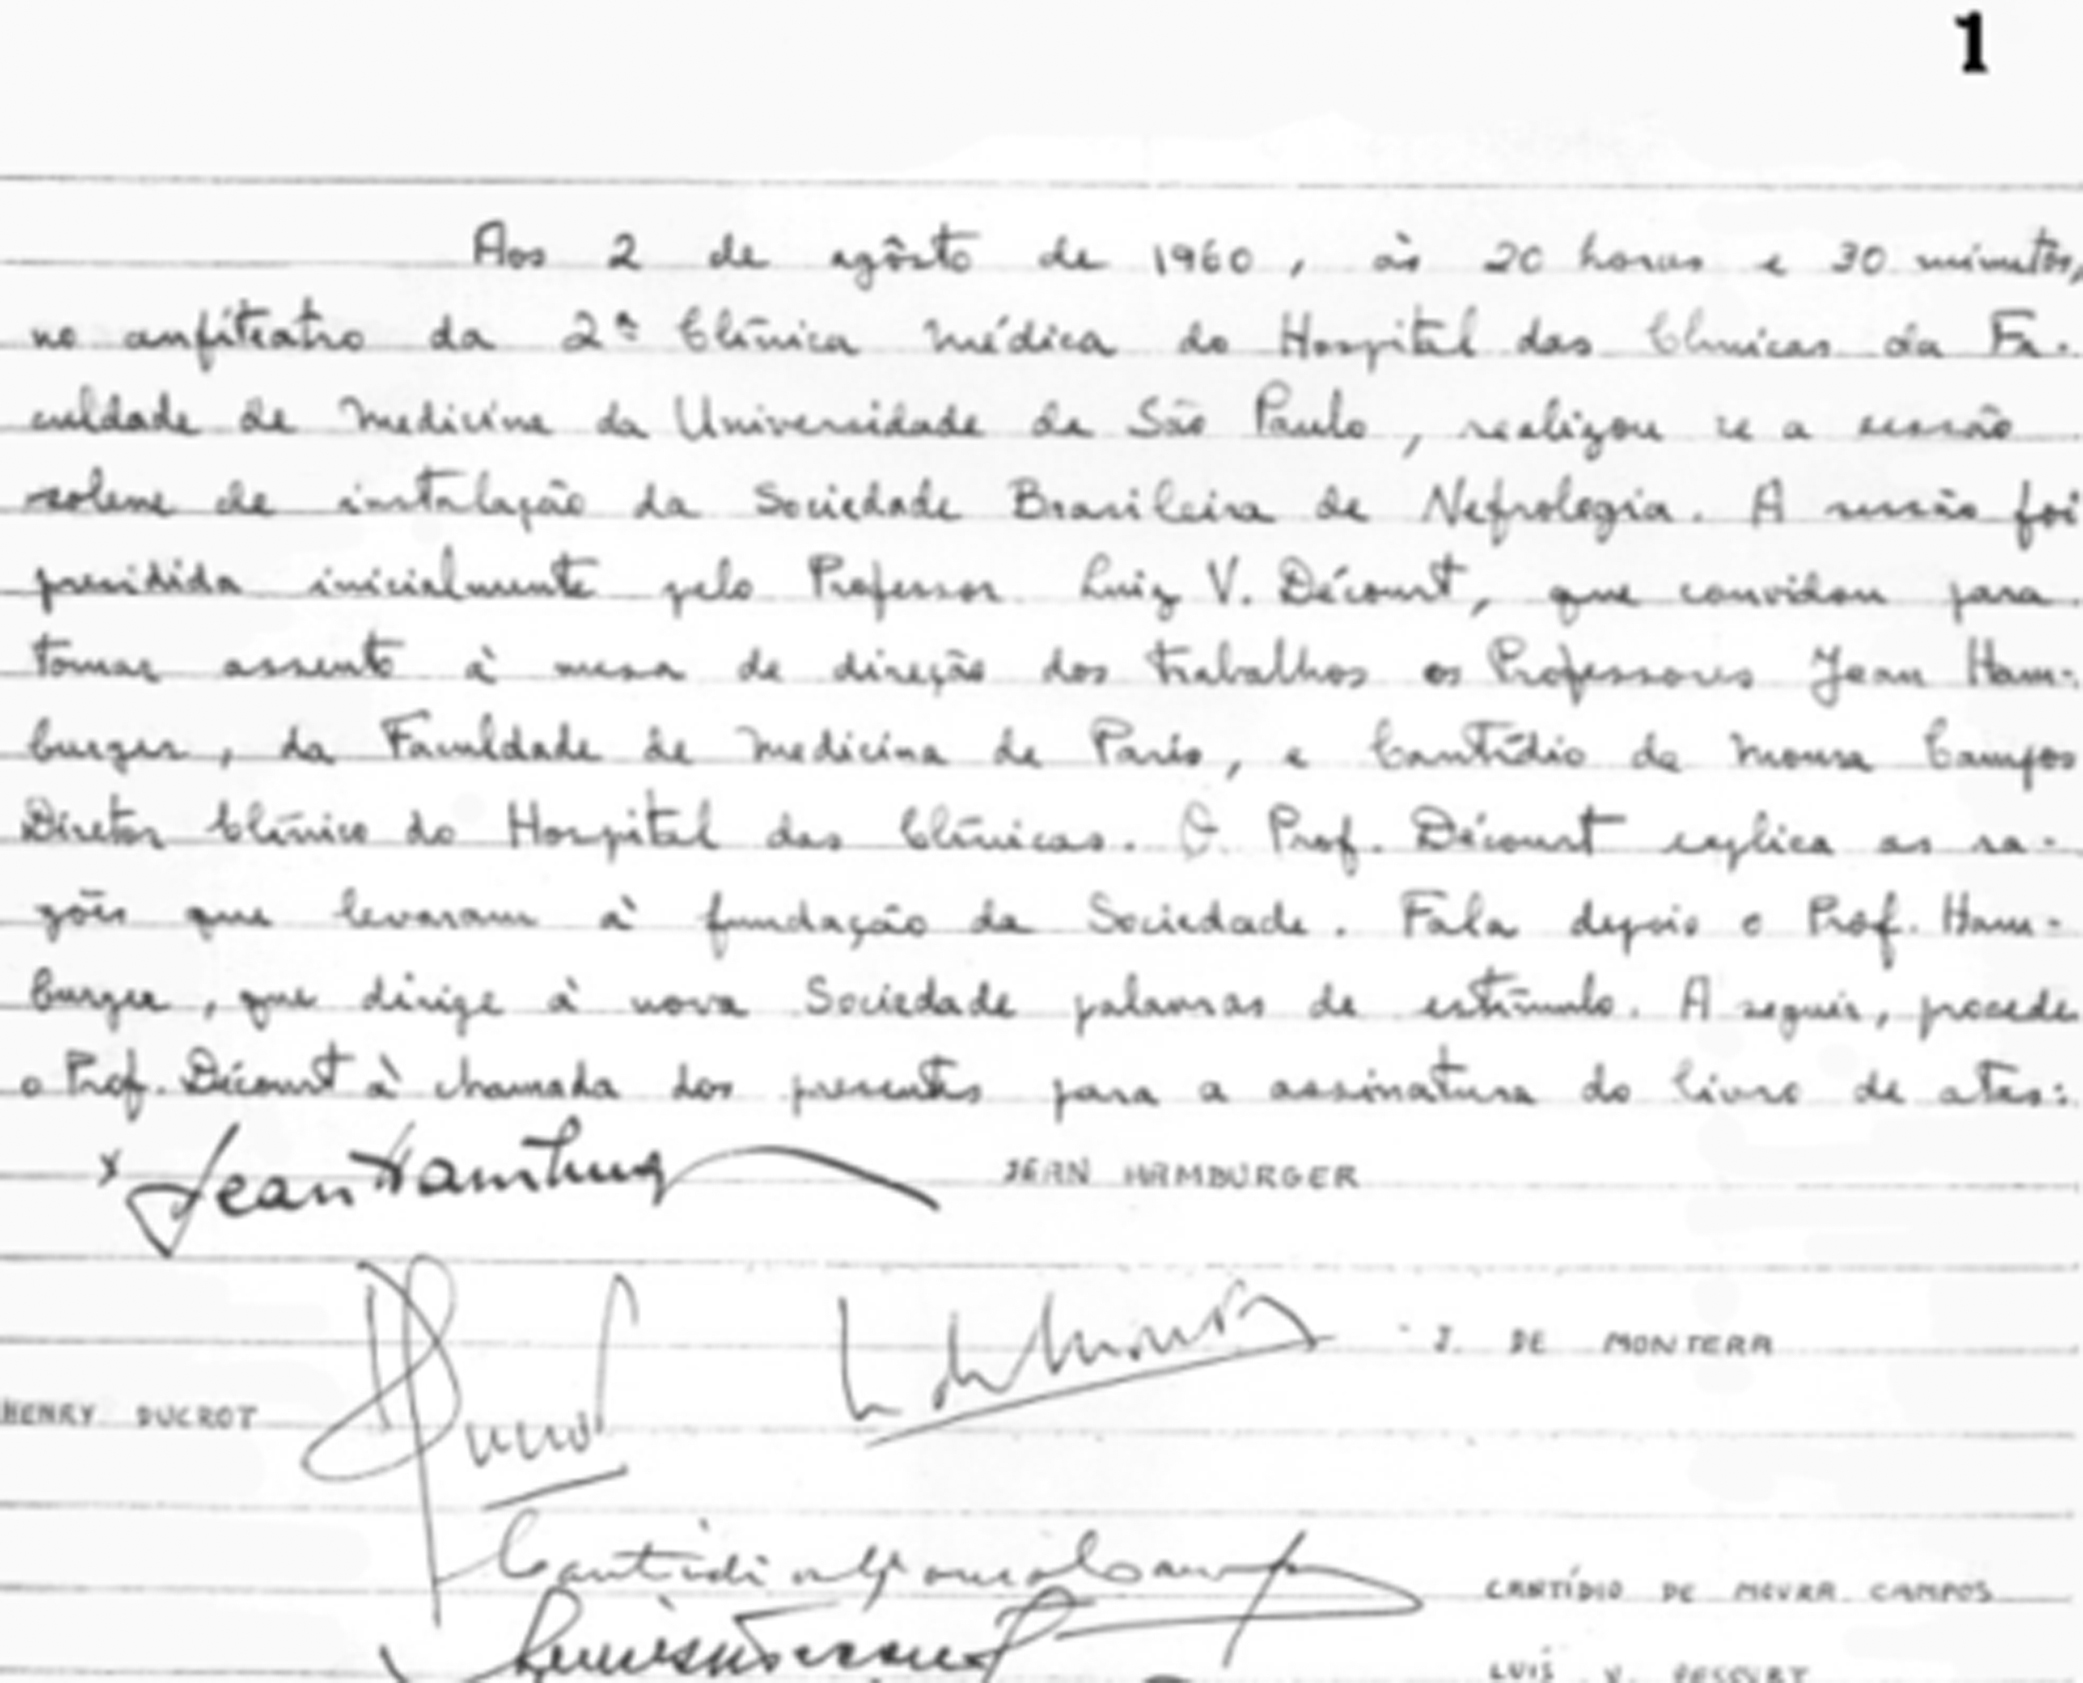 1
Aos 2 de agôsto de 1960, às 20 horas e 30 minutos,
no anfiteatro da 2ª Clínica Médica do Hospital das Clínicas da Fa-
culdade de Medicina da Universidade de São Paulo, realizou se a sessão
solene de instalação da Sociedade Brasileira de Nefrologia. A sessão foi
presidida inicialmente pelo Professor Luiz V. Décourt, que convidou para
tomar assento à mesa de direção dos trabalhos os Professores Jean Ham-
burger, da Faculdade de Medicina de Paris, e Cantídio de Moura Campos
Diretor Clínico do Hospital das Clínicas. O Prof. Décourt explica as ra-
zões que levaram à fundação da Sociedade. Fala depois o Prof. Ham-
burger, que dirige à nova Sociedade palavras de estímulo. A seguir, procede
o Prof. Décourt à chamada dos presentes para a assinatura do livro de atas:
x Jean Hamburger JEAN HAMBURGER
J. DE MONTERA
HENRY DUCROT
Cantidio de Moura Campos CANTÍDIO DE MOURA CAMPOS
LUIS V. DECOURT